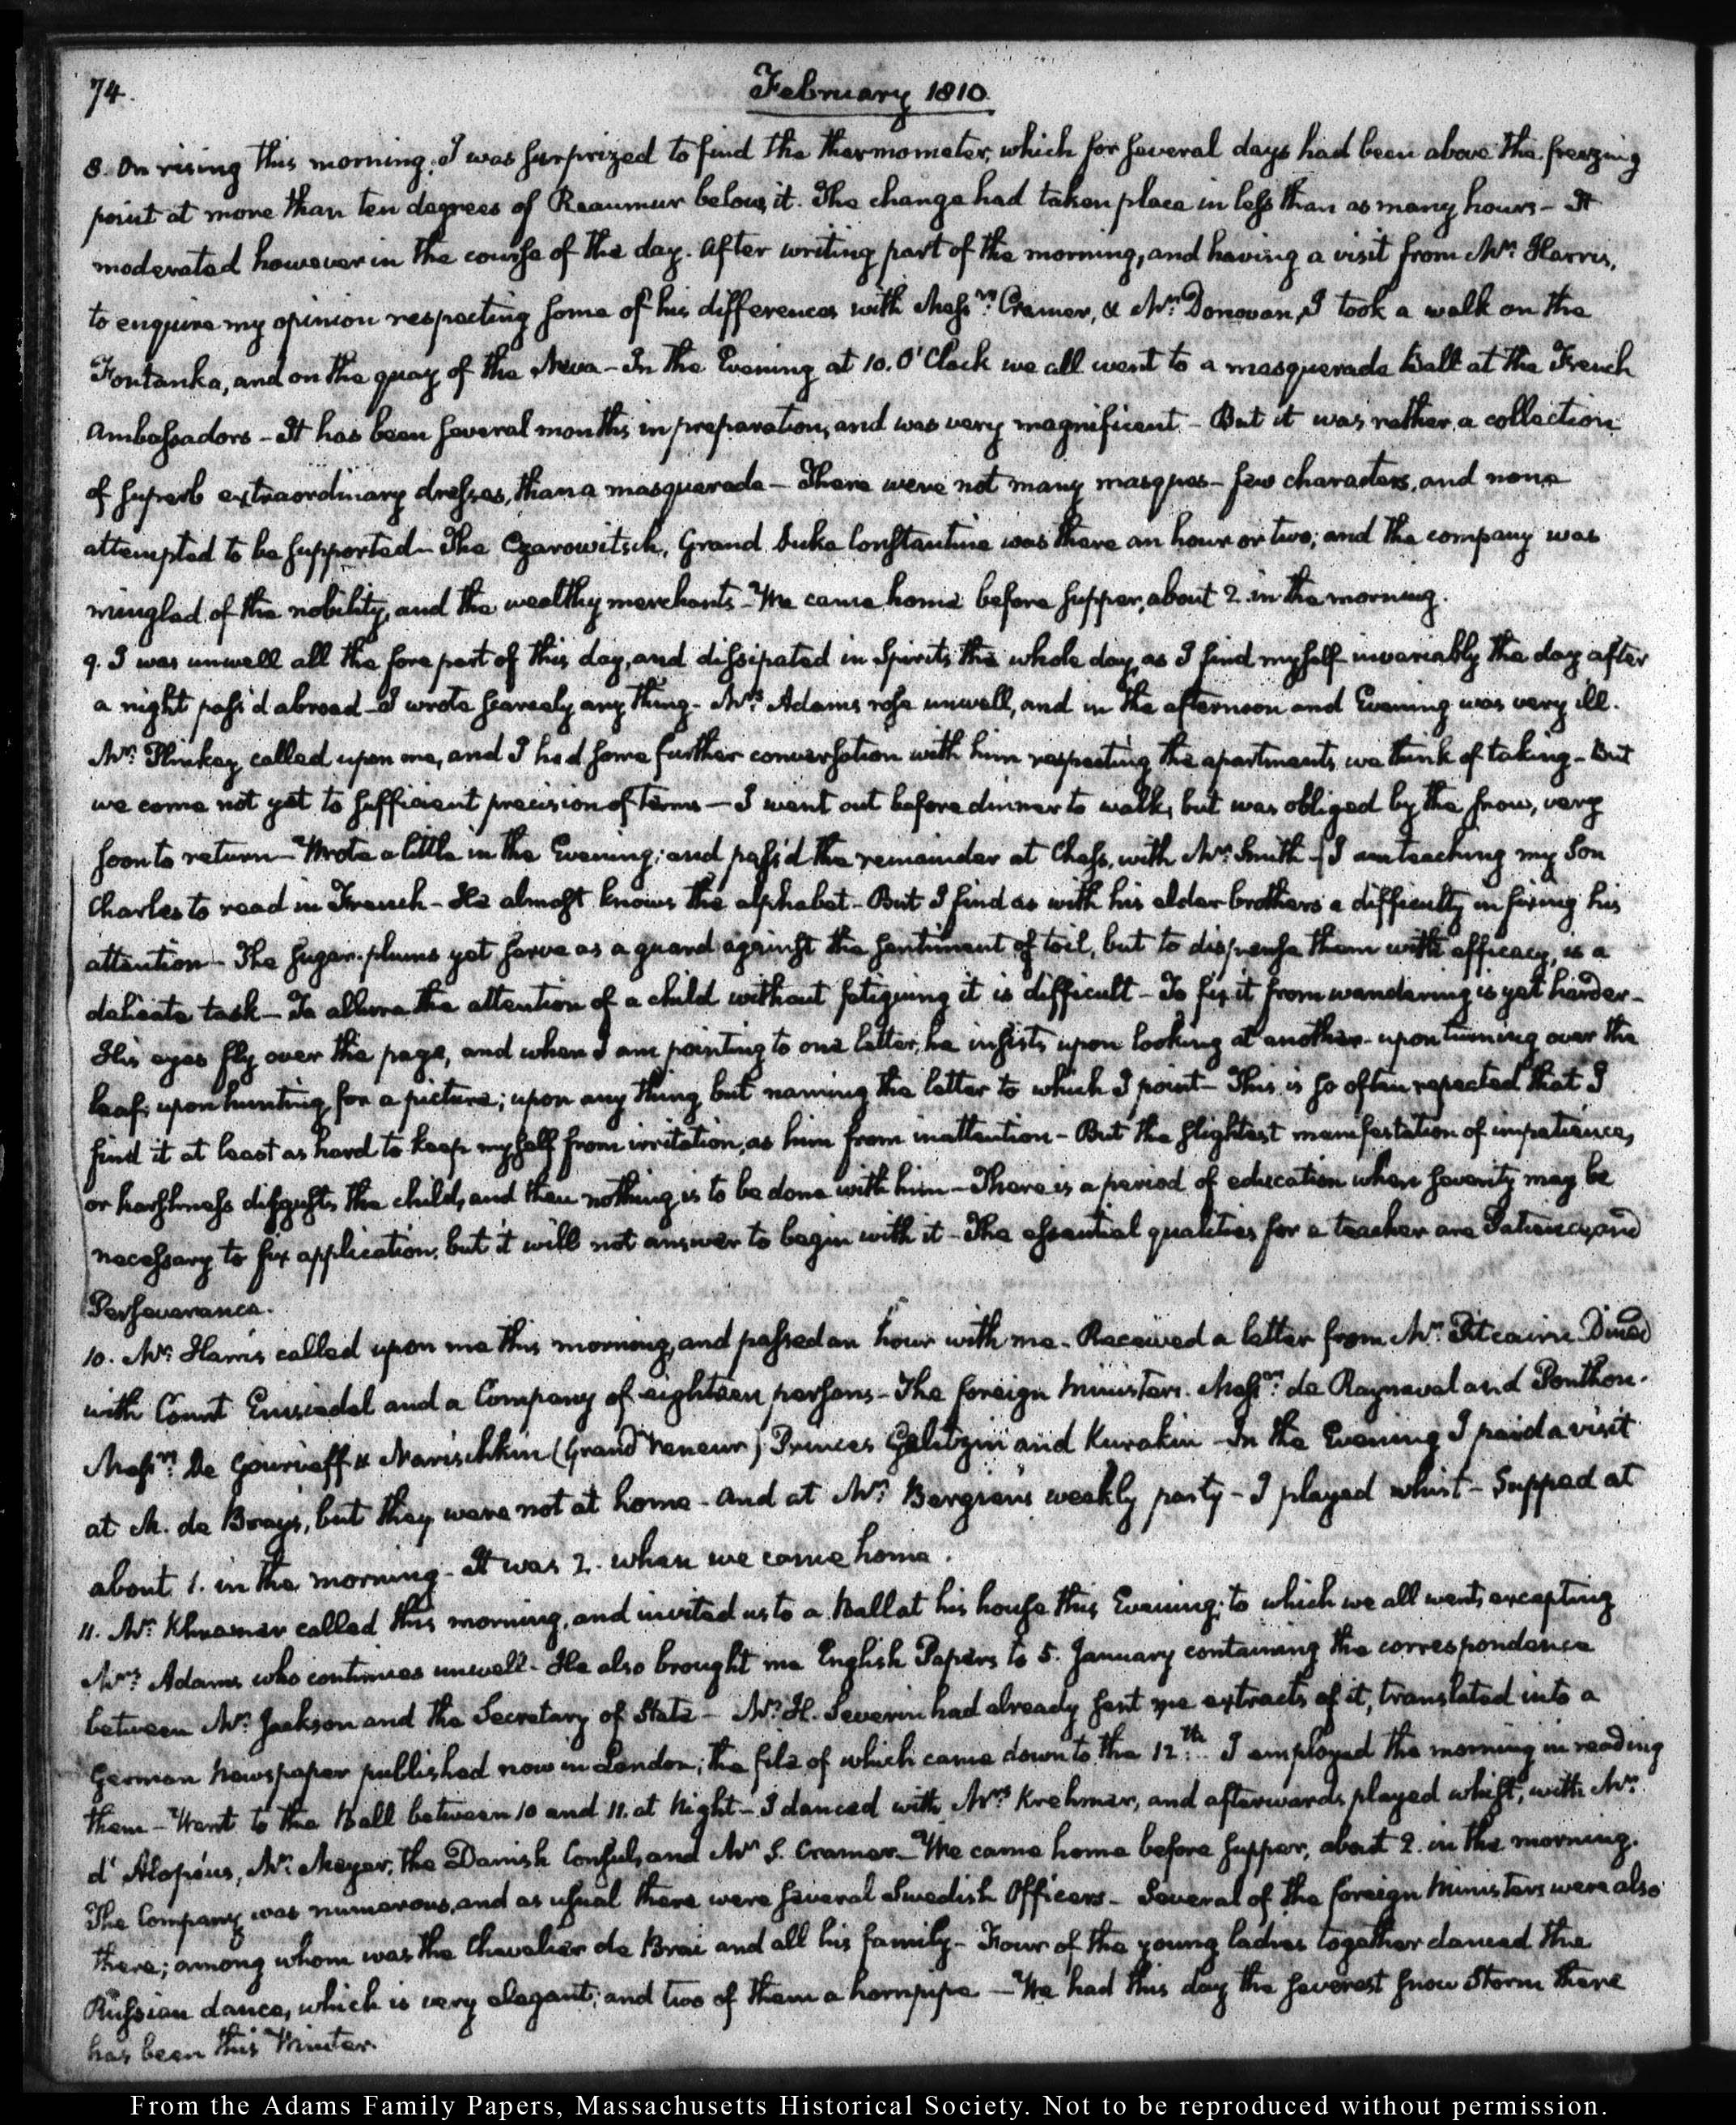 74.
February 1810.
8. On rising this morning, I was surprized to find the thermometer, which for several days had been above the freezing
point at more than ten degrees of Reaumur below it. The change had taken place in less than as many hours - It
moderated however in the course of the day. After writing part of the morning, and having a visit from Mr. Harris,
to enquire my opinion respecting some of his differences with Messrs. Cramer, & Mr. Donovan, I took a walk on the
Fontanka, and on the quay of the Neva - In the Evening at 10. O'Clock we all went to a masquerade Ball at the French
Ambassadors - It has been several months in preparation, and was very magnificent - But it was rather a collection
of superb extraordinary dresses, than a masquerade - There were not many masques - few characters, and none
attempted to be supported - The Czarowitsch, Grand Duke Constantine was there an hour or two; and the company was
mingled of the nobility, and the wealthy merchants - We came home before supper, about 2 in the morning.
9. I was unwell all the fore part of this day, and dissipated in Spirits the whole day, as I find myself invariably the day after
a night pass'd abroad - I wrote scarcely any thing - Mrs. Adams rose unwell, and in the afternoon and Evening was very ill.
Mr. Plinkey called upon me, and I had some further conversation with him respecting the apartments we think of taking - But
we come not yet to sufficient precision of terms - I went out before dinner to walk, but was obliged by the snow, very
soon to return - Wrote a little in the Evening; and pass'd the remainder at Chess, with Mr. Smith - I am teaching my Son
Charles to read in French - He almost knows the alphabet - But I find as with his elder brothers a difficulty in fixing his
attention - The sugar-plums yet serve as a guard against the sentiment of toil, but to dispense them with efficacy, is a
delicate task - To allure the attention of a child without fatiguing it is difficult - To fix it from wandering is yet harder -
His eyes fly over the page, and when I am pointing to one letter, he insists upon looking at another - upon turning over the
leaf; upon hunting for a picture; upon any thing but naming the letter to which I point - This is so often repeated that I
find it at least as hard to keep myself from irritation, as him from inattention - But the slightest manifestation of impatience,
or harshness disgusts the child, and then nothing is to be done with him - There is a period of education when severity may be
necessary to fix application; but it will not answer to begin with it - The essential qualities for a teacher are Patience, and
Perseverance.
10. Mr. Harris called upon me this morning, and passed an hour with me - Received a letter from Mr. Pitcairn. Dined
with Count Einsiedel and a Company of eighteen persons - The foreign Ministers. Messrs. de Rayneval and Ponthon.
Messrs. De Gourieff & Narischkin (Grand Veneur) Princes Galitzin and Kurakin - In the Evening I paid a visit
at M. de Bray's, but they were not at home - And at Mr. Bergien's weekly party - I played whist - Supped at
about 1. in the morning - It was 2. when we came home.
11. Mr. Khremer called this morning, and invited us to a Ball at his house this Evening; to which we all went, excepting
Mrs. Adams who continues unwell - He also brought me English Papers to 5. January containing the correspondence
between Mr. Jackson and the Secretary of State - Mr. H. Severin had already sent me extracts of it, translated into a
German Newspaper published now in London; the file of which came down to the 12th. I employed the morning in reading
them - Went to the Ball between 10 and 11. at Night - I danced with Mrs. Krehmer, and afterwards played whist, with Mr.
d'Alopeus, Mr. Meyer, the Danish Consul, and Mr. S. Cramer - We came home before supper, about 2. in the morning.
The Company was numerous, and as usual there were several Swedish Officers - Several of the foreign Ministers were also
there; among whom was the Chevalier de Brai and all his family - Four of the young ladies together danced the
Russian dance, which is very elegant; and two of them a hornpipe - We had this day the severest snow Storm there
has been this Winter.
From the Adams Family Papers, Massachusetts Historical Society. Not to be reproduced without permission.